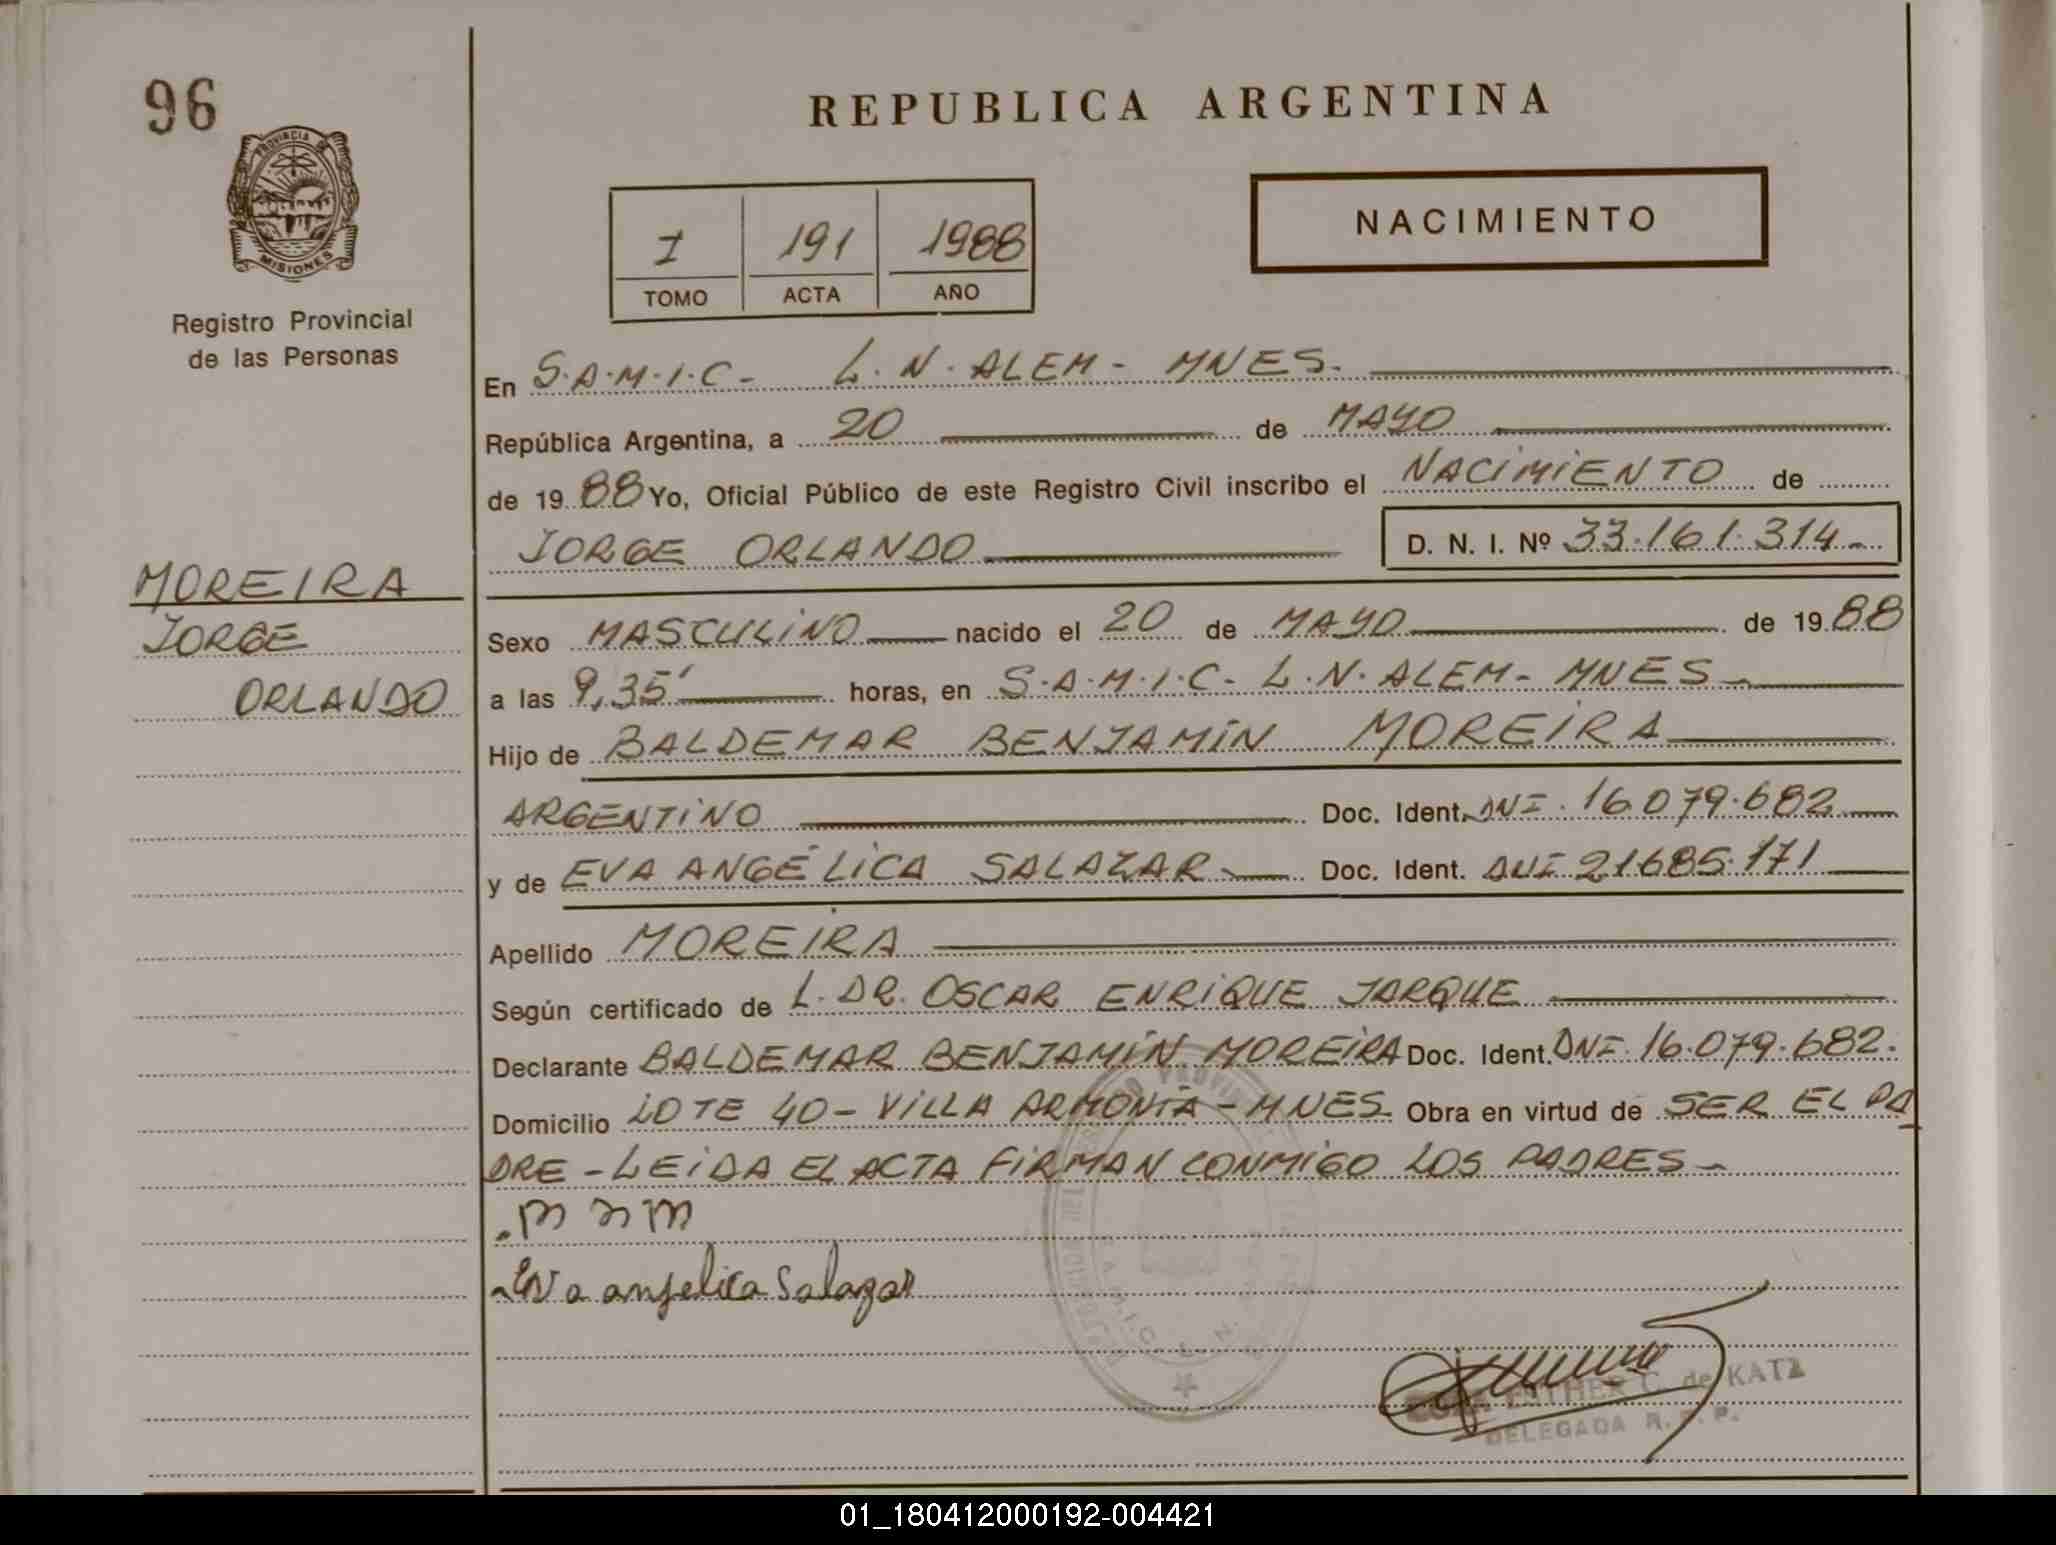 96
PROVINCIA DE
MISIONES
Registro Provincial
de las Personas
REPUBLICA ARGENTINA
NACIMIENTO
I 191 1988
TOMO ACTA AÑO
En S.A.M.I.C- L.N.ALEM- MNES.
República Argentina, a 20 de MAYO
de 19 88 Yo, Oficial Público de este Registro Civil inscribo el NACIMIENTO de
JORGE ORLANDO D. N. I. Nº 33.161.314-
MOREIRA
JORGE
ORLANDO
Sexo MASCULINO nacido el 20 de MAYO de 19 88
a las 9,35' horas, en S.A.M.I.C- L.N.ALEM- MNES-
Hijo de BALDEMAR BENJAMIN MOREIRA
ARGENTINO Doc. Ident. DNI. 16.079.682
y de EVA ANGÉLICA SALAZAR Doc. Ident. DNI 21685.171
Apellido MOREIRA
Según certificado de L. DR. OSCAR ENRIQUE JARQUE
Declarante BALDEMAR BENJAMÍN MOREIRA Doc. Ident. DNI. 16.079.682.
Domicilio LOTE 40- VILLA ARMONÍA - MNES Obra en virtud de SER EL PA
DRE - LEIDA EL ACTA FIRMAN CONMIGO LOS PADRES-
Eva anjelica Salazar
ESTHER C. de KATZ
DELEGADA R. P. P.
01_180412000192-004421